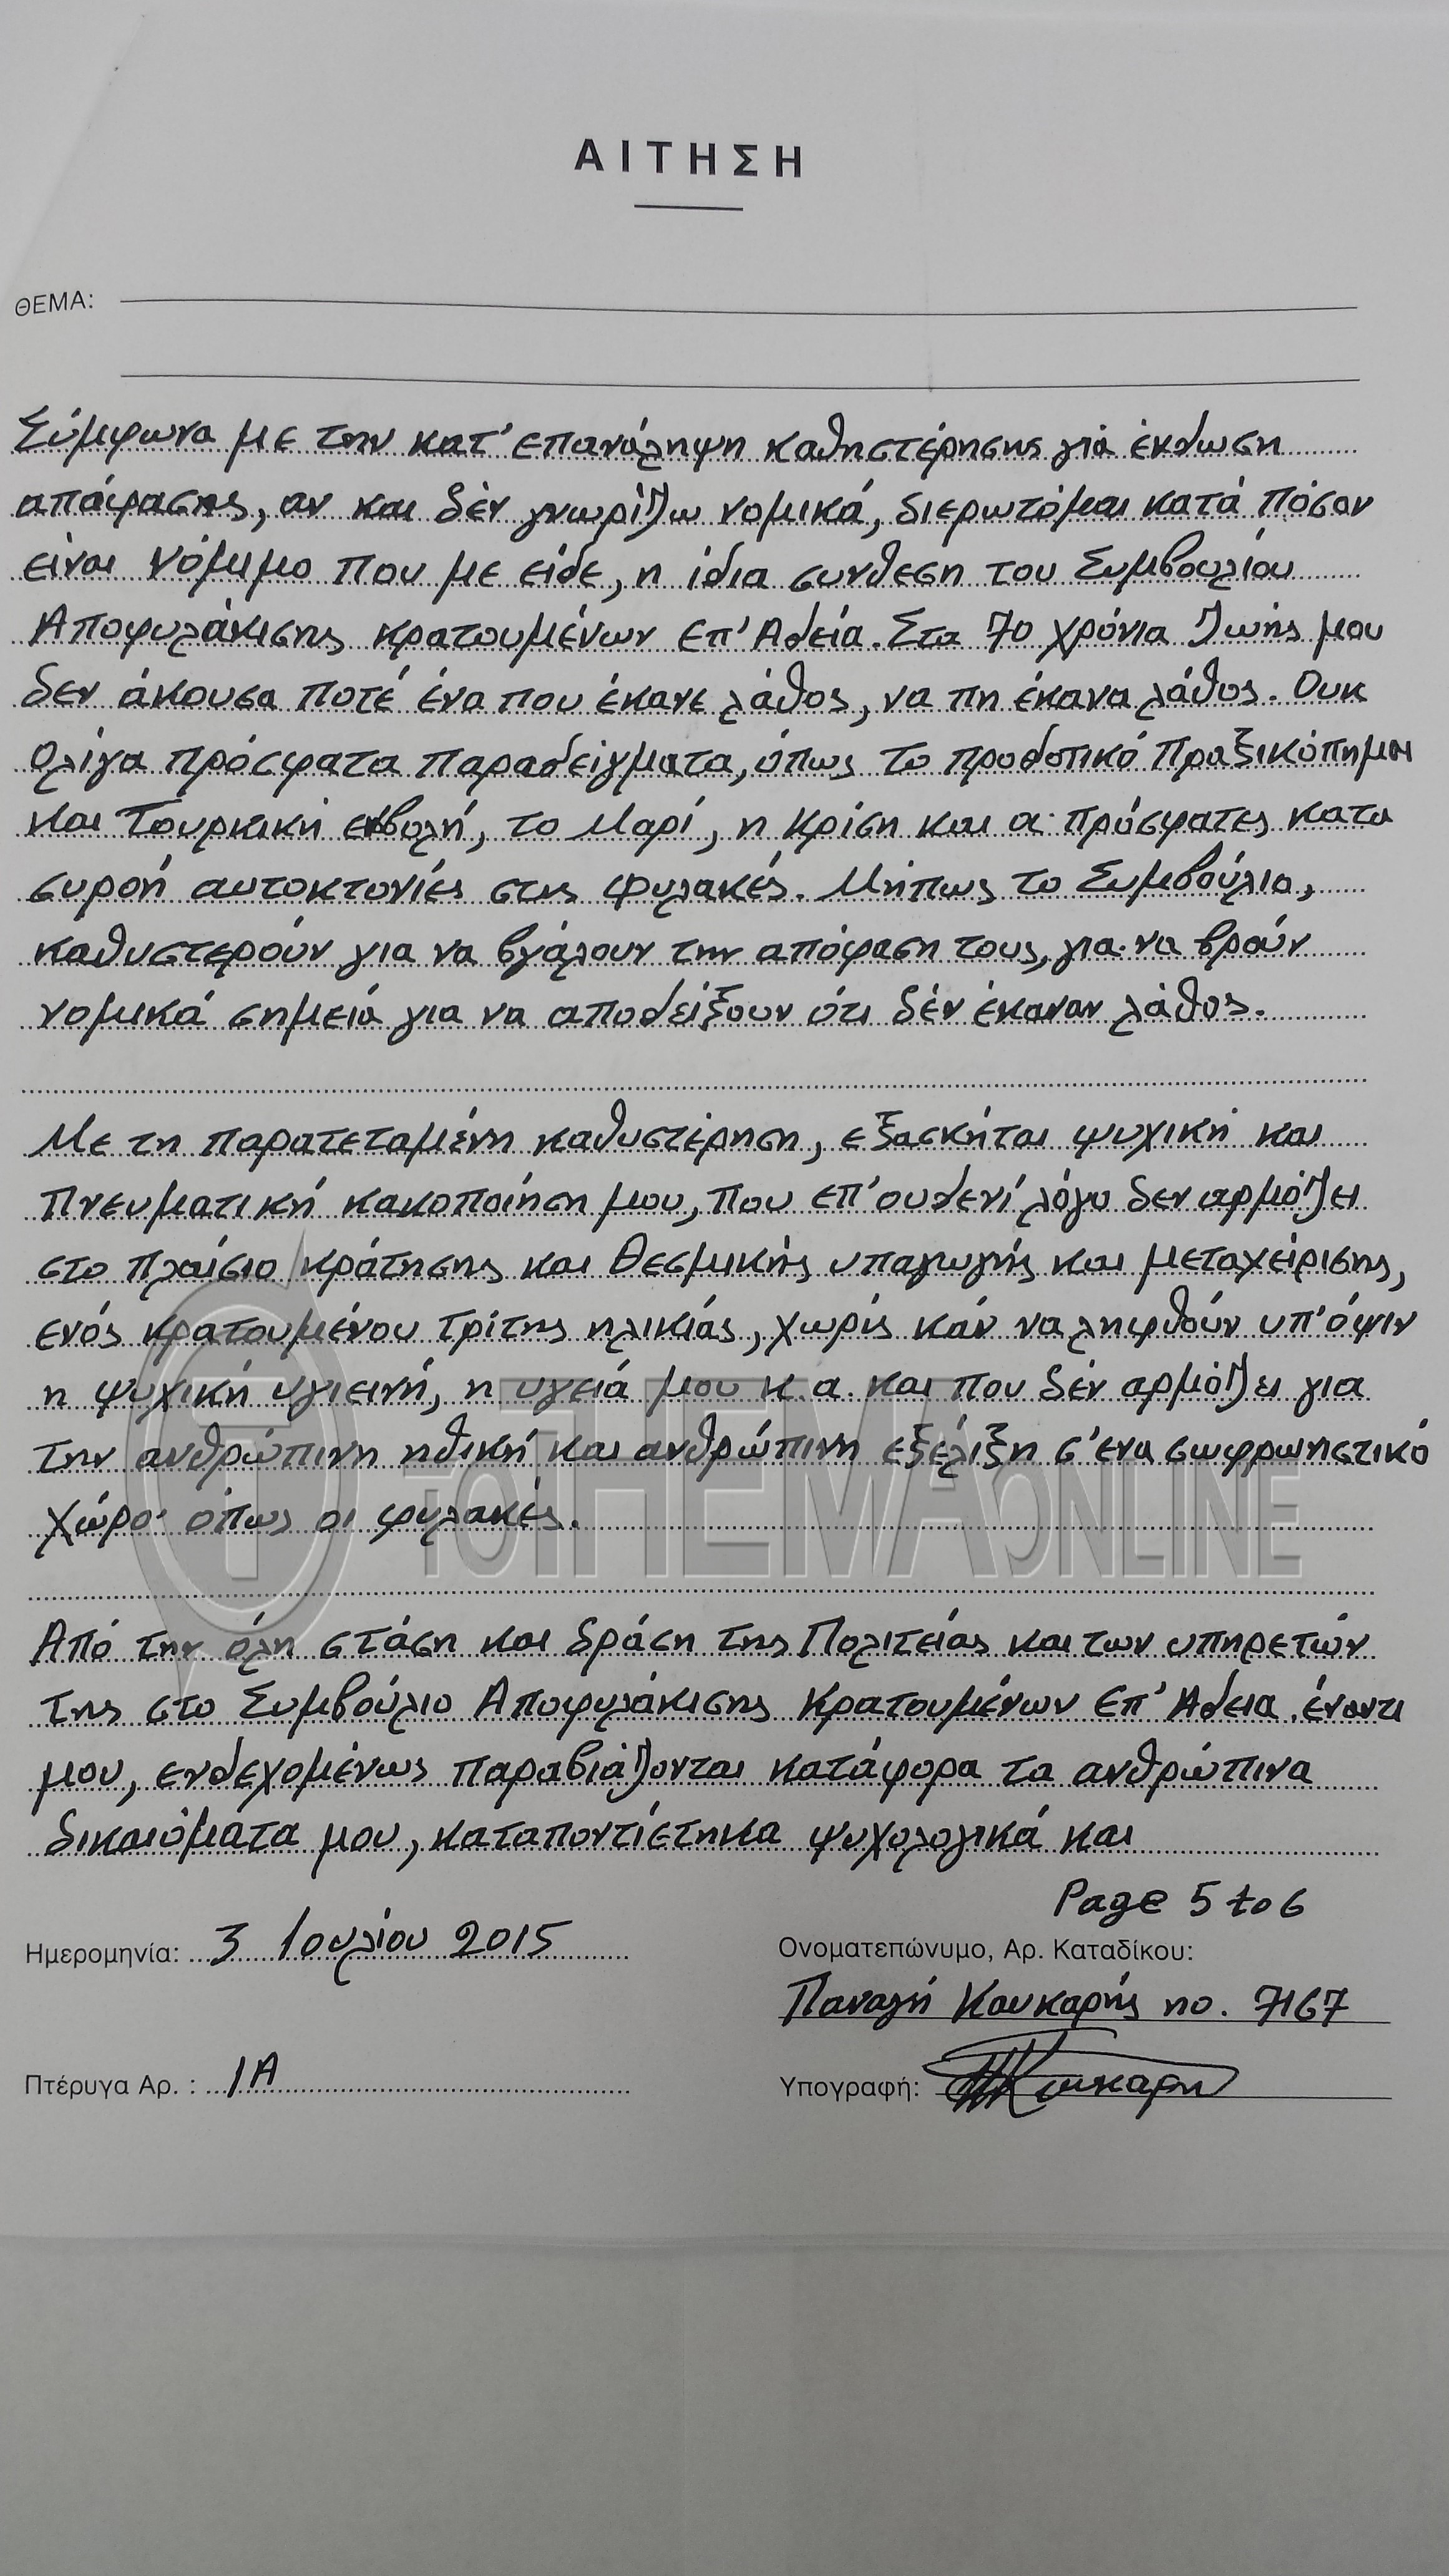 ΑΙΤΗΣΗ
ΘΕΜΑ:
Σύμφωνα με την κατ' επανάληψη καθηστέρησης γιά έκδωση
απόφασης, αν και δέν γνωρίζω νομικά, διερωτόμαι κατά πόσον
είναι Νόμιμο που με είδε, η ίδια συνθεση του Συμβουλίου
Αποφυλάκισης κρατουμένων Επ' Αδεία. Στα 70 χρόνια ζωής μου
δεν άκουσα ποτέ ένα που έκανε λάθος, να πη έκανα λάθος. Ουκ
Ολίγα πρόσφατα παραδείγματα, όπως το προδοτικό Πραξικόπημα
και Τουρκική εισβολή, το Μαρί, η κρίση και οι πρόσφατες κατα
συροή αυτοκτονίες στις φυλακές. Μήπως το Συμβούλιο,
καθυστερούν για να βγάλουν την απόφαση τους, για να βρούν
νομικά σημειά για να αποδείξουν ότι δέν έκαναν λάθος.
Με τη παρατεταμένη καθυστέρηση, εξασκήται ψυχική και
Πνευματική κακοποίηση μου, που επ' ουδενί λόγο δεν αρμόζει
στο πλαίσιο κράτησης και θεσμικής υπαγωγής και μεταχείρισης,
ενός κρατουμένου τρίτης ηλικίας, χωρίς κάν να ληφθούν υπ' όψιν
η ψυχική υγιεινή, η υγειά μου κ.α. και που δέν αρμόζει για
την ανθρώπινη ηθική και ανθρώπινη εξέλιξη σ' ένα σωφρωνηστικό
χώρο όπως οι φυλακές.
Από την όλη στάση και δράση της Πολιτείας και των υπηρετών
της στο Συμβούλιο Αποφυλάκισης Κρατουμένων Επ' Αδεια έναντι
μου, ενδεχομένως παραβιάζονται κατάφορα τα ανθρώπινα
δικαιόματα μου, καταποντίετηκα ψυχολογικά και
Page 5 to 6
Ημερομηνία: 3 Ιουλίου 2015
Ονοματεπώνυμο, Αρ. Καταδίκου:
Παναγή Καυκαρής no. 7167
Πτέρυγα Αρ. : 1Α
Υπογραφή: Καυκαρή
ΤΟ ΤΗΕΜΑ ONLINE